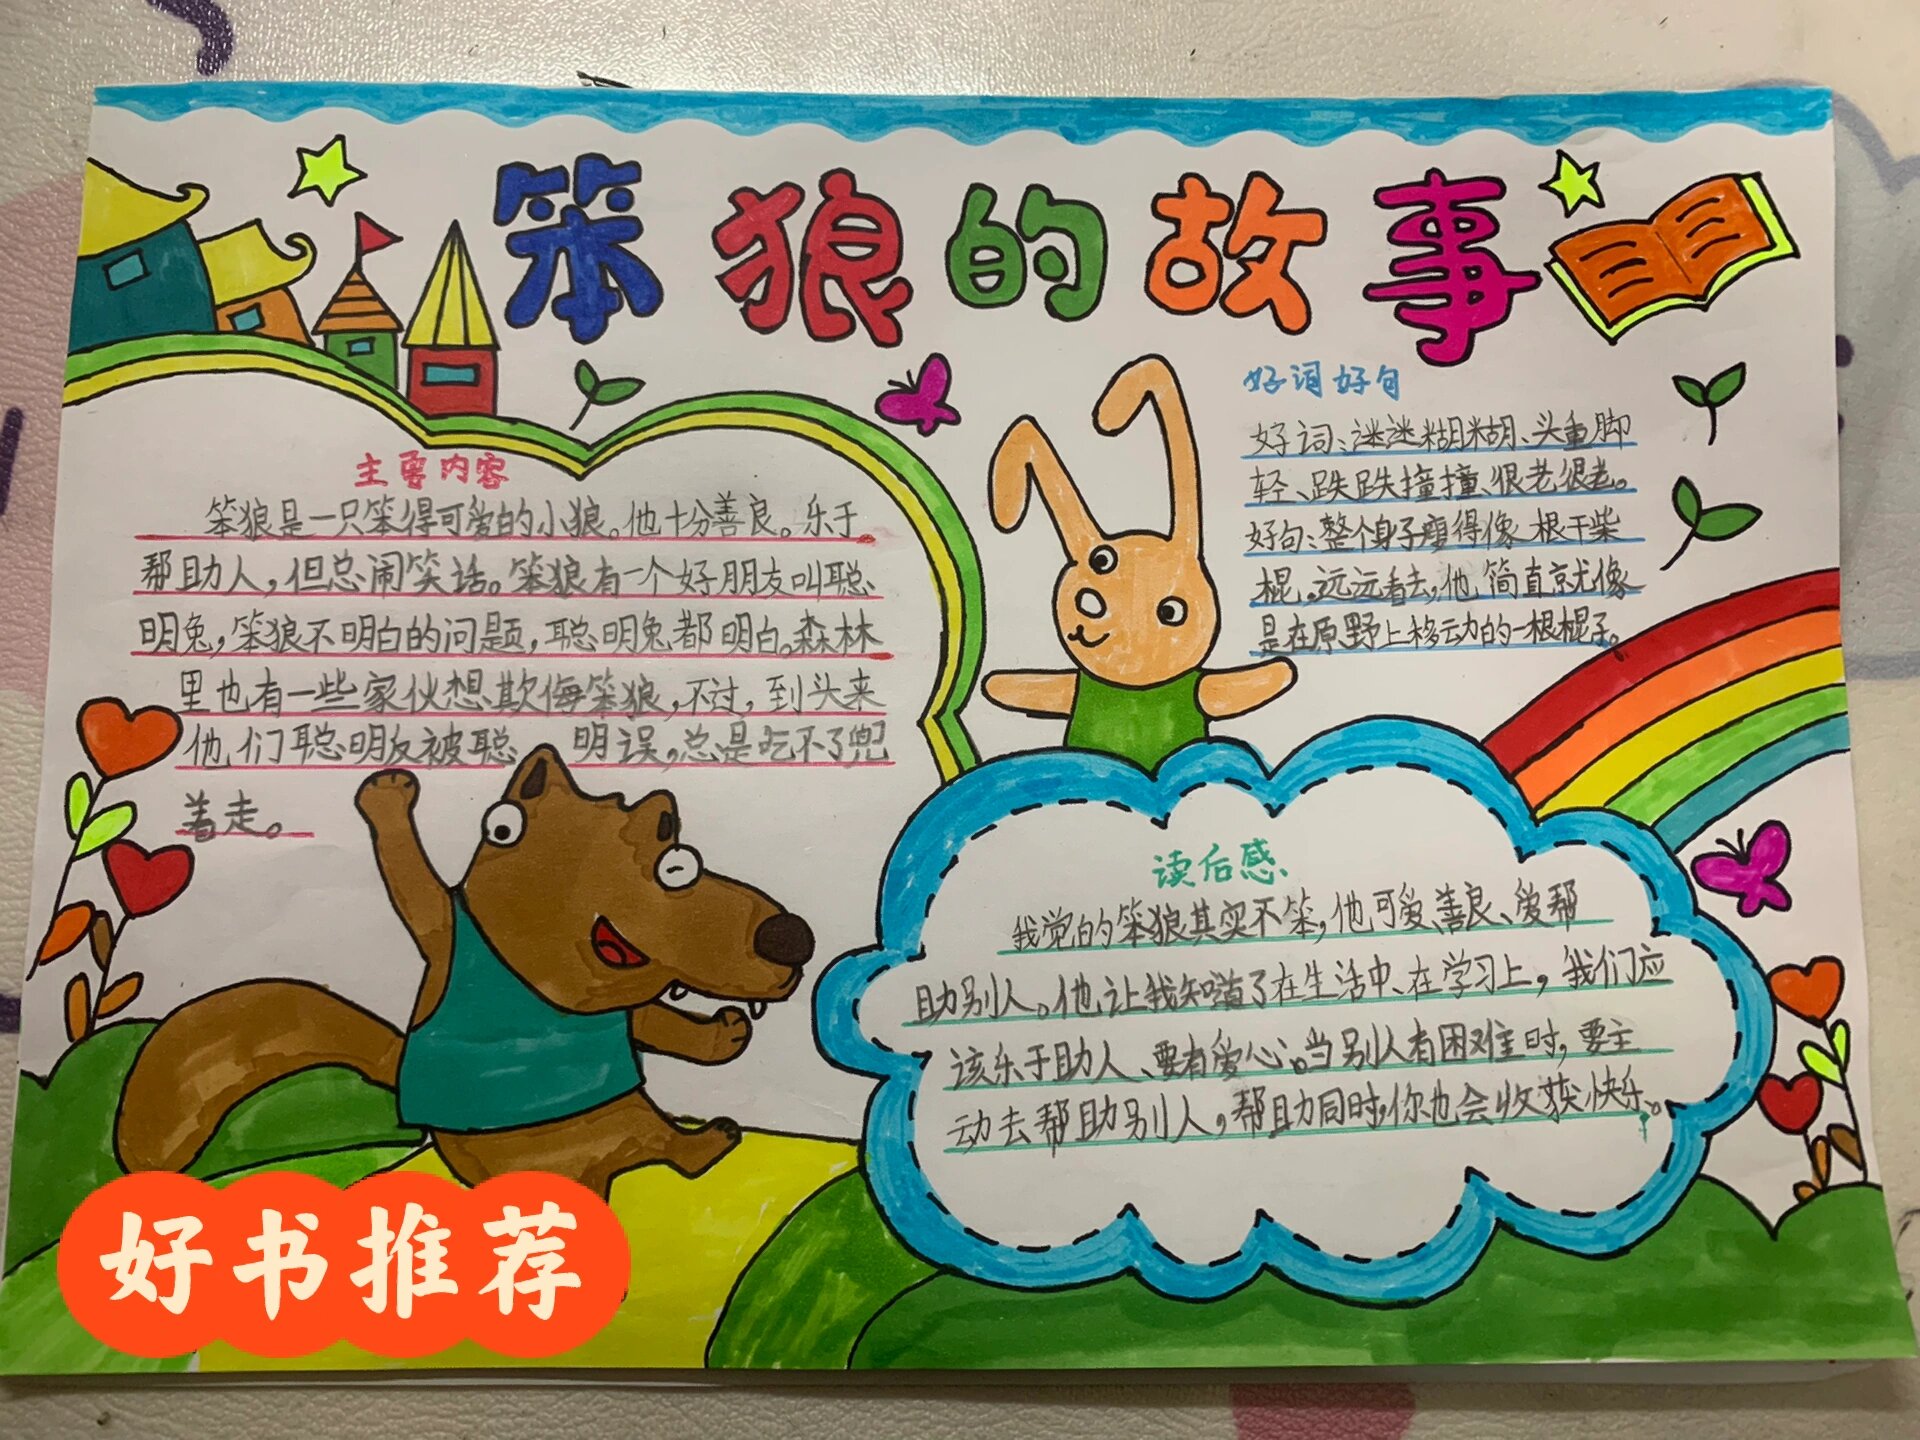 笨狼的故事
主要内容
笨狼是一只笨得可爱的小狼。他十分善良。乐于
帮助人，但总闹笑话。笨狼有一个好朋友叫聪
明兔，笨狼不明白的问题，聪明兔都明白。森林
里也有一些家伙想欺侮笨狼，不过，到头来
他们聪明反被聪明误，总是吃不了兜
着走。
好词好句
好词：迷迷糊糊、头重脚
轻、跌跌撞撞、很老很老。
好句：整个身子瘦得像根干柴
棍。远远看去，他简直就像
是在原野上移动的一根棍子。
读后感
我觉的笨狼其实不笨，他可爱、善良、爱帮
助别人。他让我知道了在生活中、在学习上，我们应
该乐于助人、要有爱心。当别人有困难时，要主
动去帮助别人，帮助同时，你也会收获快乐。
好书推荐